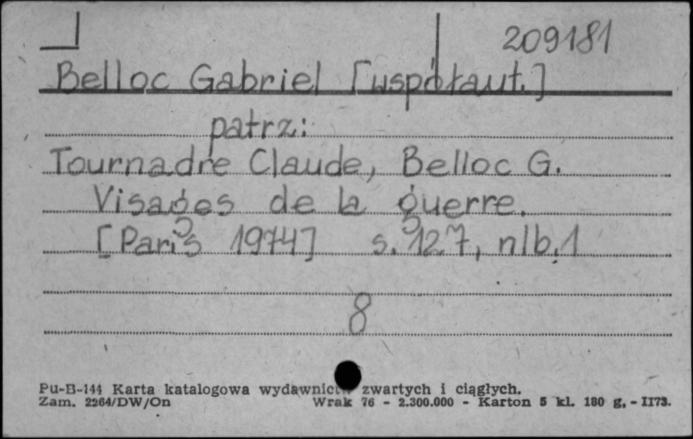 209181
Belloc Gabriel [współaut.]
patrz:
Tournadre Claude, Belloc G.
Visages de la guerre.
[Paris 1974] s. 127, nlb. 1
8
Pu-B-144 Karta katalogowa wydawnictw zwartych i ciągłych.
Zam. 2264/DW/On Wrak 76 - 2.300.000 - Karton 5 kl. 180 g. - II73.